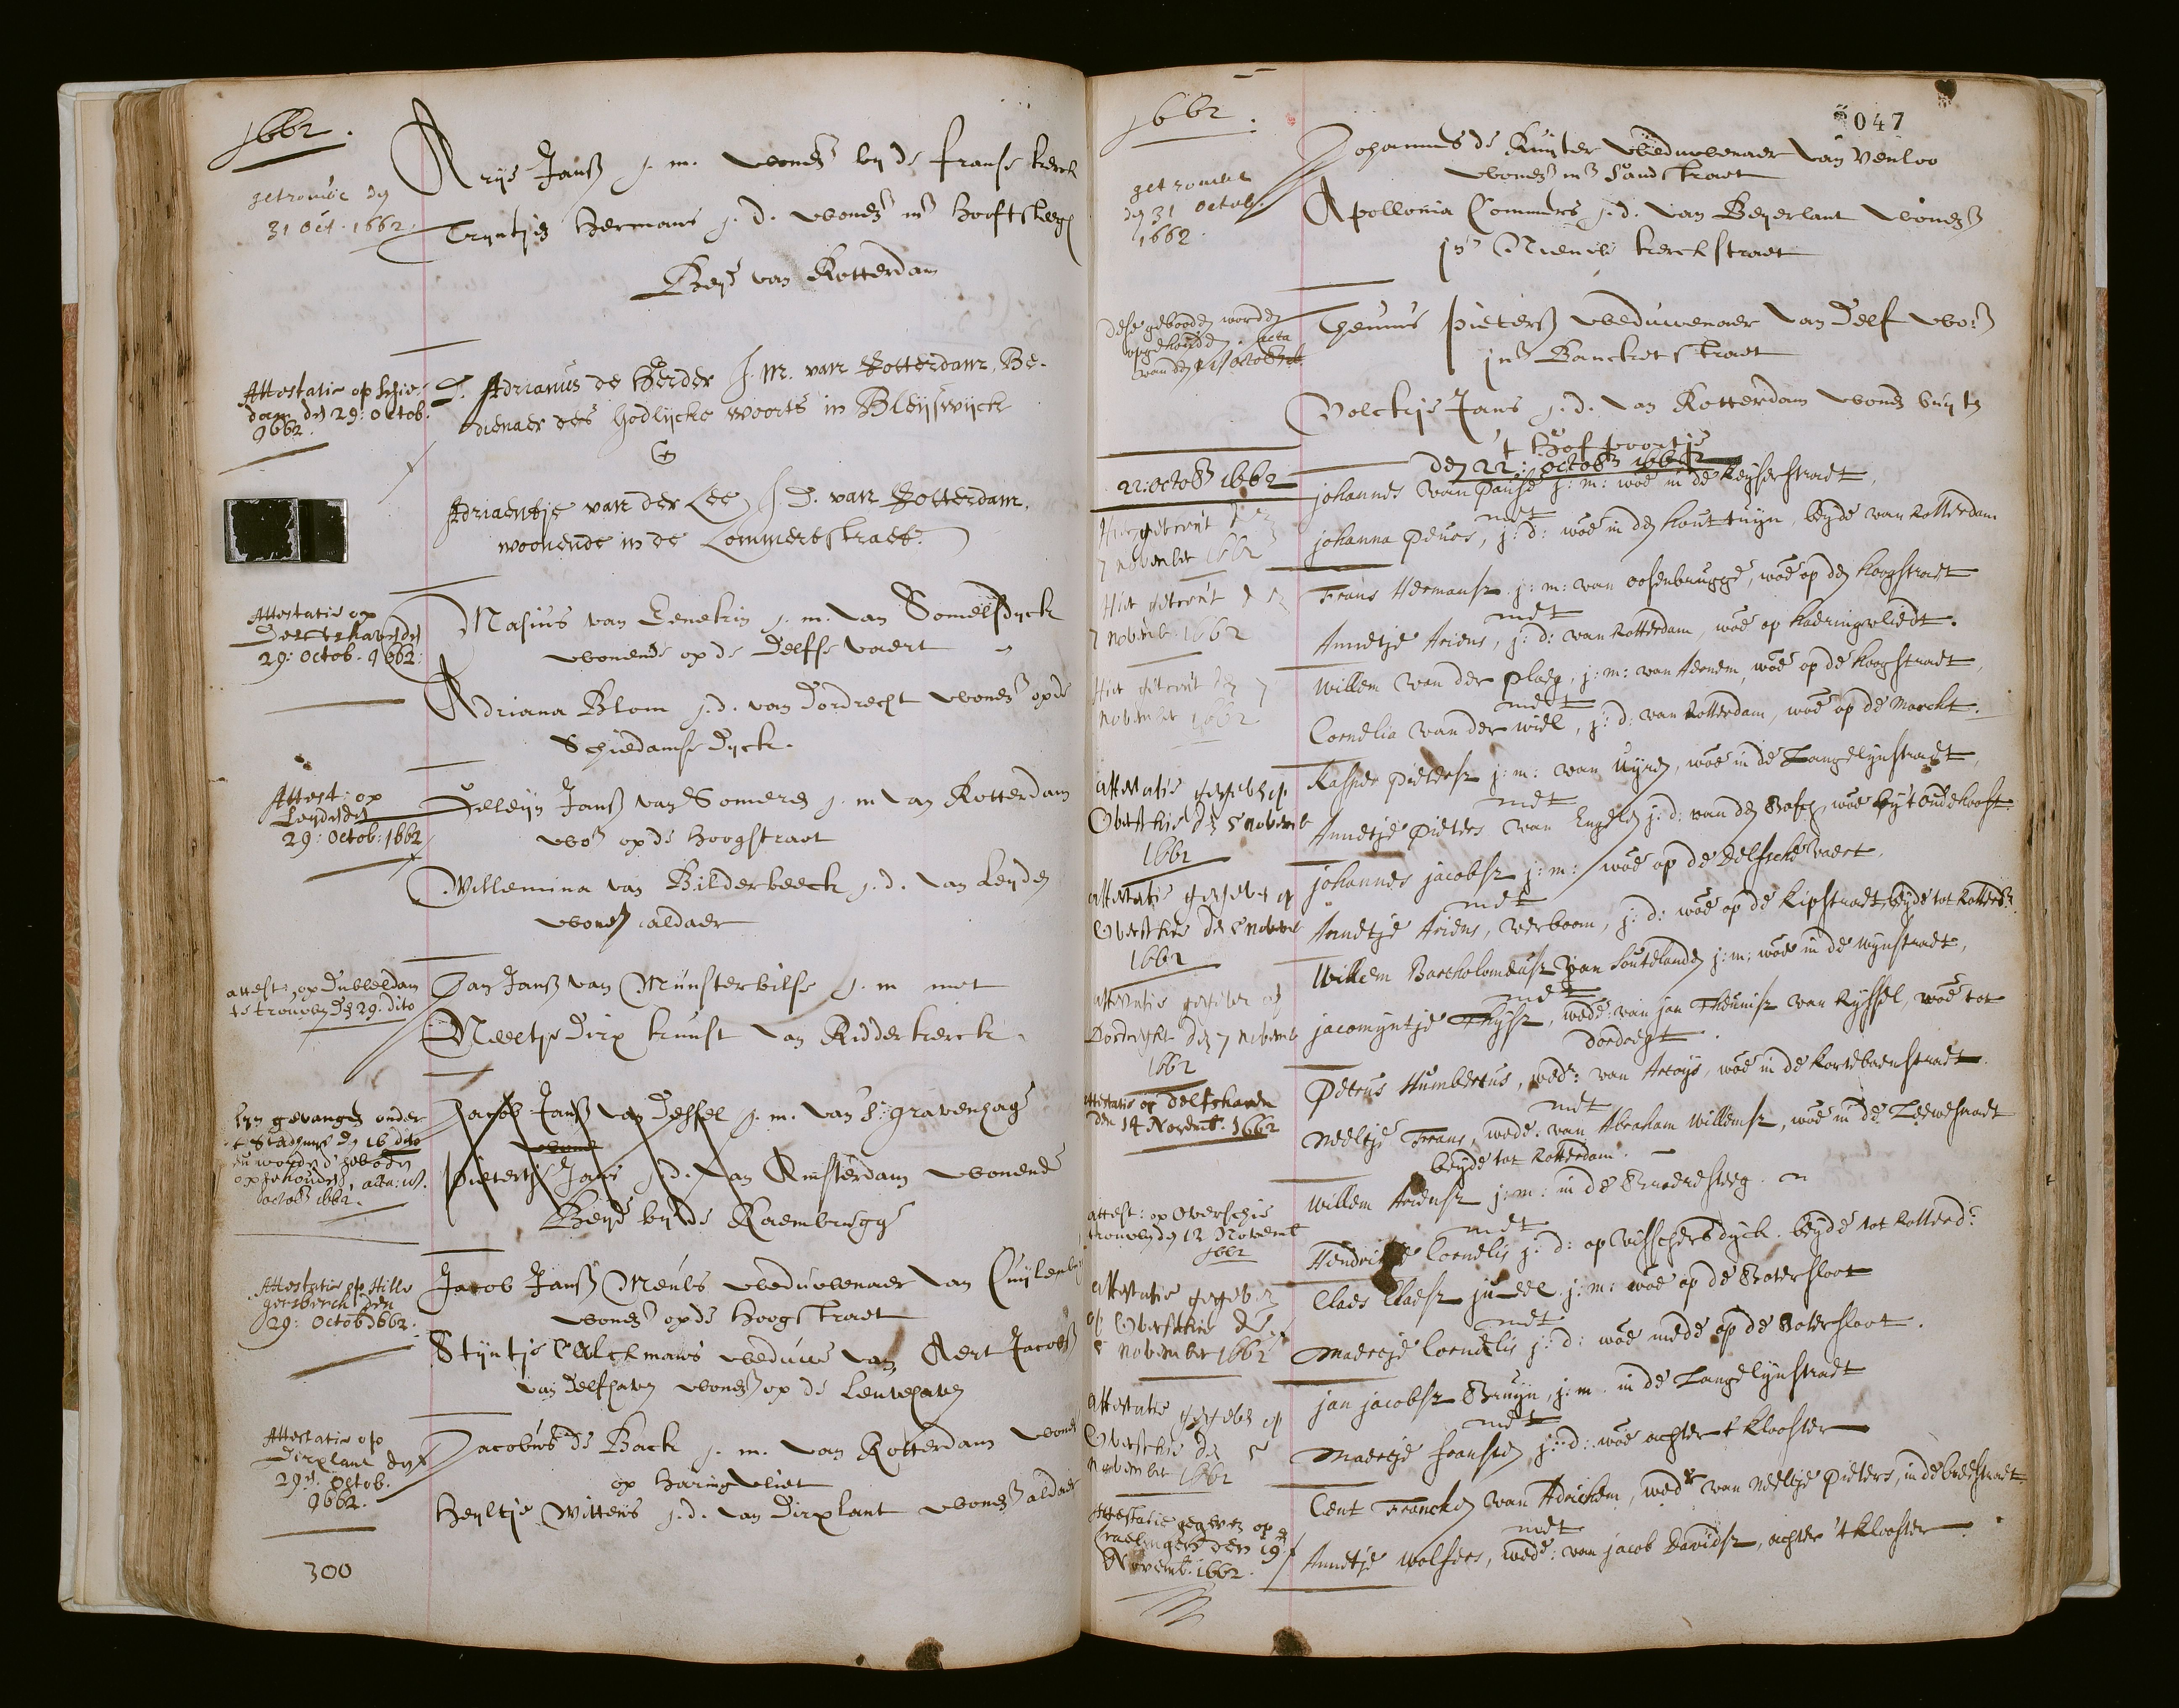 1662.
getrouwt den
31 Oct. 1662.
Arije Janß j. m. wonen bij de franse kerck
Tryntjen Hermans j. d. wonen int Hooftsteegh
Beyde van Rotterdam
Attestatie op Schie
dam den 29: Octob.
1662.
D. Adrianus de Herder J. M. van Rotterdam, Be-
dienaer des Godlijcke woorts in Bleijswijck
En
Adriaentje van der Lee J. D. van Rotterdam,
woonende in de Lommertstraet.
Attestatie op
29: Octob. 1662:
Masius van j. m. van Somelsdyck
wonende op de Delffse vaert
Adriana Blom j. d. van Dordrecht wonen op de
Schiedamse Dyck.
Attest: op
Leyden den
29: Octob: 1662
Janß van Someren j. m. van Rotterdam
won op de Hoogstraet
Willemina van Bilderbeeck j. d. van Leyden
wonen aldaer
attest: op Dubbeldam
te trouwen den 29. dito
Jan Janß van Munsterbilse j. m. met
Neeltje Dirx van Ridderkerck
Syn gevangen onder
't Stadhuys den 16 dito
en worden d'geboden
opgehouden, acta:
octob 1662.
Jacob Janß van Dessel j. m. van S: Gravenhage
wonen
Pietertje Jans j. d. van Amsterdam wonende
Beyde by de Raembrugge
Attestatie op Hille
gersberch den
29: Octob 1662.
Jacob Janß Meuls weduwenaer van Cuylenb
wonen op de Hoogstraet
Styntje Volckmans weduwe van Aert Jacobß
van Delfshaven wonen op de Leuvehaven
Attestatie op
Dirxlant den
29en Octob.
1662.
Jacobus de Back j. m. van Rotterdam wonen
op Haringvliet
Heyltje Wittens j. d. van Dirxlant wonen aldaer
300
1662.
047
getrouwt
den 31 Octob.
1662.
Johannes de Ruyter weduwenaer van Venloo
wonen int Sandstraet
Apollonia Commers j. d. van Beyerlant wonen
int Nieuwe kerckstraet
dese geboden worden
opgehouden. acta
van den octob
Theunis Pieterß weduwenaer van Delf won
int Banckerstraet
Volckje Jans j. d. van Rotterdam wonen buyten
't Hofpoortje
22: octob 1662
den 22: octob: 1662
johannes van j: m: woe in de Keyserstraet,
met
johanna j: d: woe in den houttuyn, beyde van Rotterdam
Hier getrout den
7 november 1662
Frans Hermansz j: m: van oosenbrugge, woe op den hoogstraet
met
Annetje Ariens, j: d: van Rotterdam, woe op haeringvliedt.
Hier getrout den
7 novemb. 1662
Willem van der ploeg, j: m: van Aernem, woe op de hoogstraet,
met
Cornelia van der wiel, j: d: van Rotterdam, woe op de Marckt.
Hier getrout den 7
november 1662
Kasper pietersz j: m: van, woe in de Langelynstraet,
met
Annetje Pieters van Engelen j: d: van den Bosch, woe by't oudehooft.
attestatie gegeven op
Overschie den 5 novemb
1662
johannes jacobsz j: m: woe op de Delfsche vaert,
met
Annetje Ariens, verboom, j: d: woe op de Kipstraet, beyde tot Rotterd:
attestatie gegeven op
Overschie den 5 novemb
1662
Willem Bartholomeusz van Soutelanden j: m: woe in de wynstraet,
met
jacomyntje Thysz, wede: van jan Theunisz van Ryssel, woe tot
dordregt.
attestatie gegeven op
Dordreght den 7 novemb
1662
Petrus Humbertus, wedr: van Artoys, woe in de kortebaenstraet
met
Neeltje Frans, wede: van Abraham Willemsz, woe in de Leewestraet
beyde tot Rotterdam.
Attestatie op Delfshaven
den 14 Novemb. 1662
Willem Ariensz j: m: in de Broedesteeg
met
Cornelis j: d: op Visschersdyck. beyde tot Rotterd:
attest: op Overschie
trouwen den 12 Novemb
1662
Claes Claesz j: m: woe op de Botersloot
met
Maertje Cornelis j: d: woe mede op de Botersloot.
attestatie gegeven
op Overschie den
5 november 1662
jan jacobsz Bruyn, j: m: in de Langelynstraet
met
Maertje fransen j: d: woe achter 't klooster
attestatie gegeven op
Overschie den 5
november 1662
Cent Francken van Adrichem, wedr van Neeltje Pieters, in de breestraet
met
Annetje wolfers, wede: van jacob Davidsz, achter 't klooster.
Attestatie gegeven op
Craelingen den 19
Novemb. 1662.